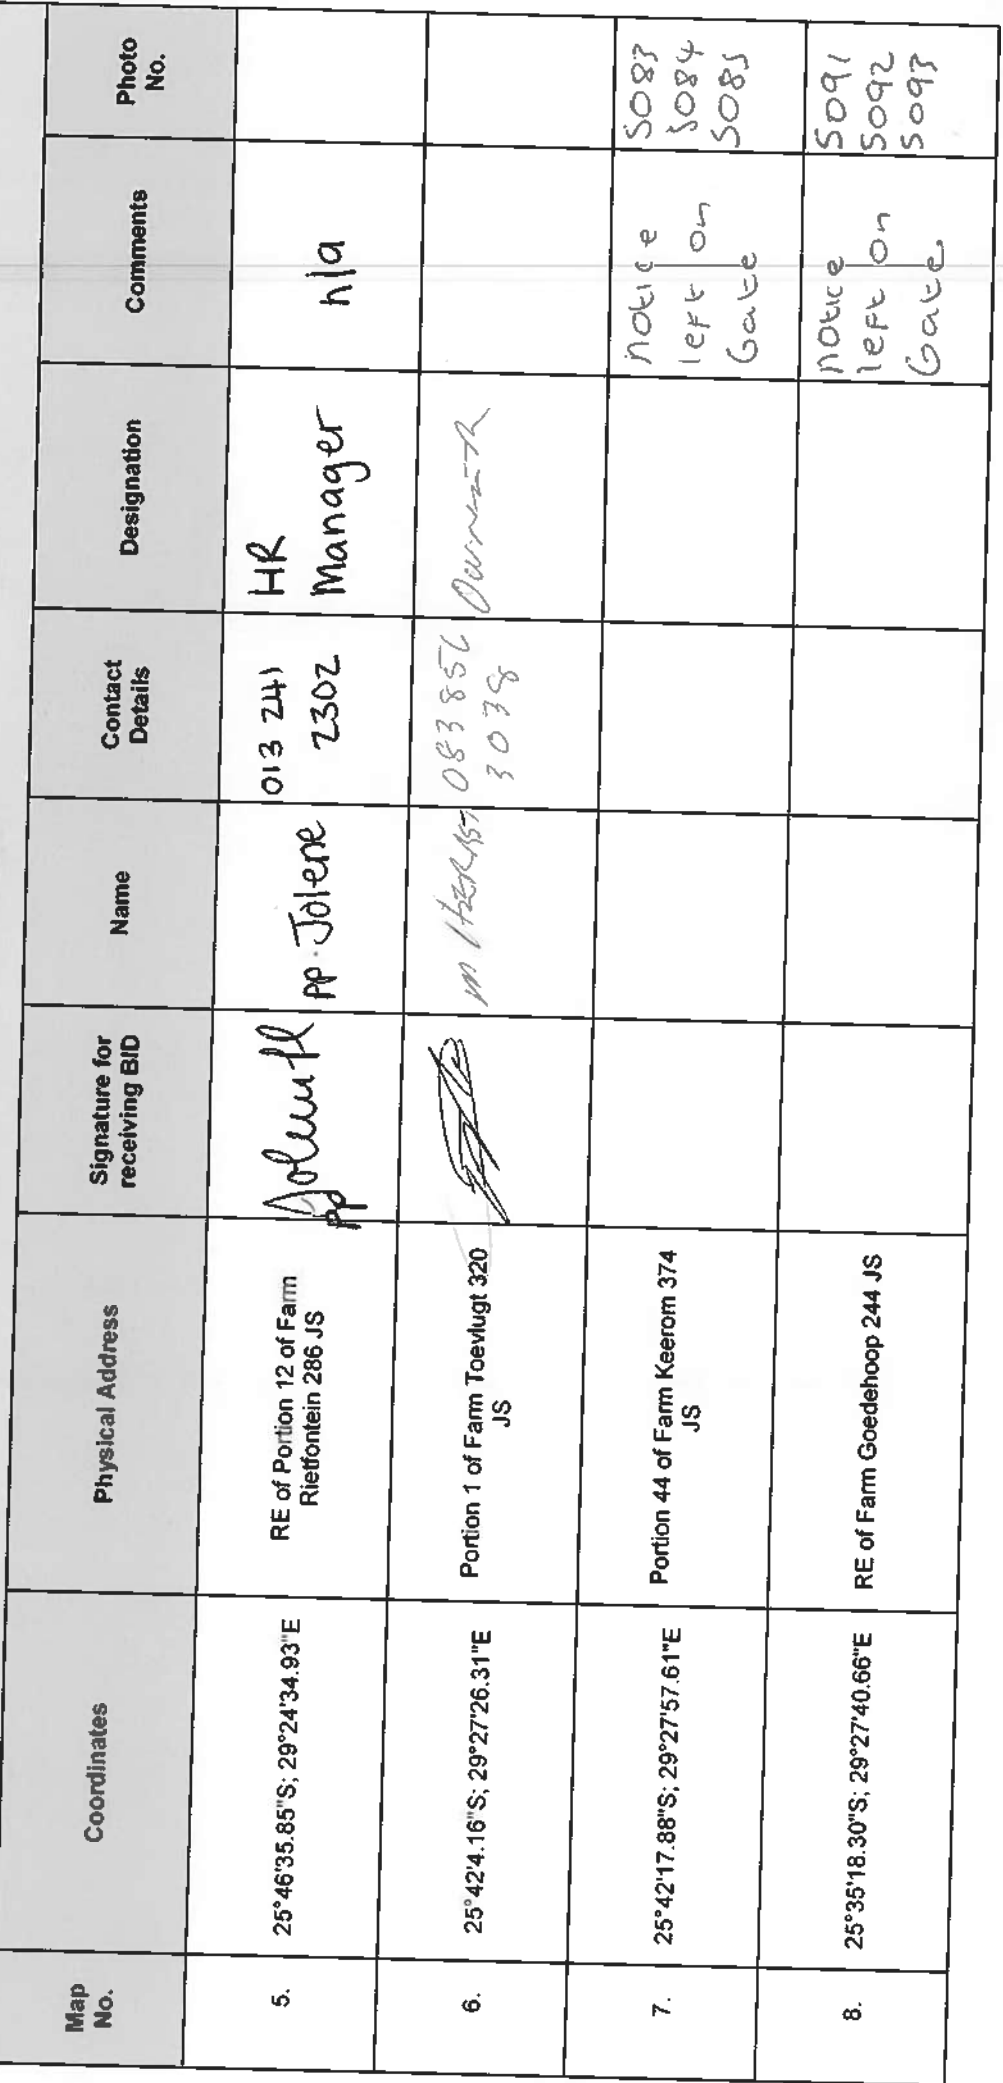 Map No.
Coordinates
Physical Address
Signature for receiving BID
Name
Contact Details
Designation
Comments
Photo No.
5.
25°46'35.85"S; 29°24'34.93"E
RE of Portion 12 of Farm
Rietfontein 286 JS
pp
pp. Jolene
013 241
2302
HR
Manager
n/a
6.
25°42'4.16"S; 29°27'26.31"E
Portion 1 of Farm Toevlugt 320
JS
m
083 856
3038
7.
25°42'17.88"S; 29°27'57.61"E
Portion 44 of Farm Keerom 374
JS
notice
left on
Gate
5083
5084
5085
8.
25°35'18.30"S; 29°27'40.66"E
RE of Farm Goedehoop 244 JS
notice
left on
Gate
5091
5092
5093